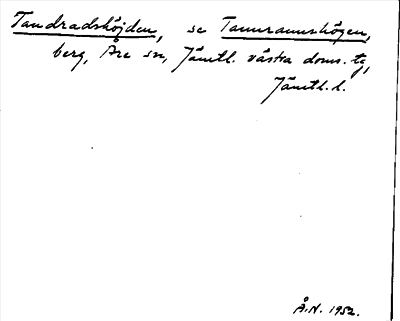 Tandradshöjden, se Tamraanshögen,
berg, Åre sn, Jämtl. västra doms. tg,
Jämtl. l.
Å.N. 1952.